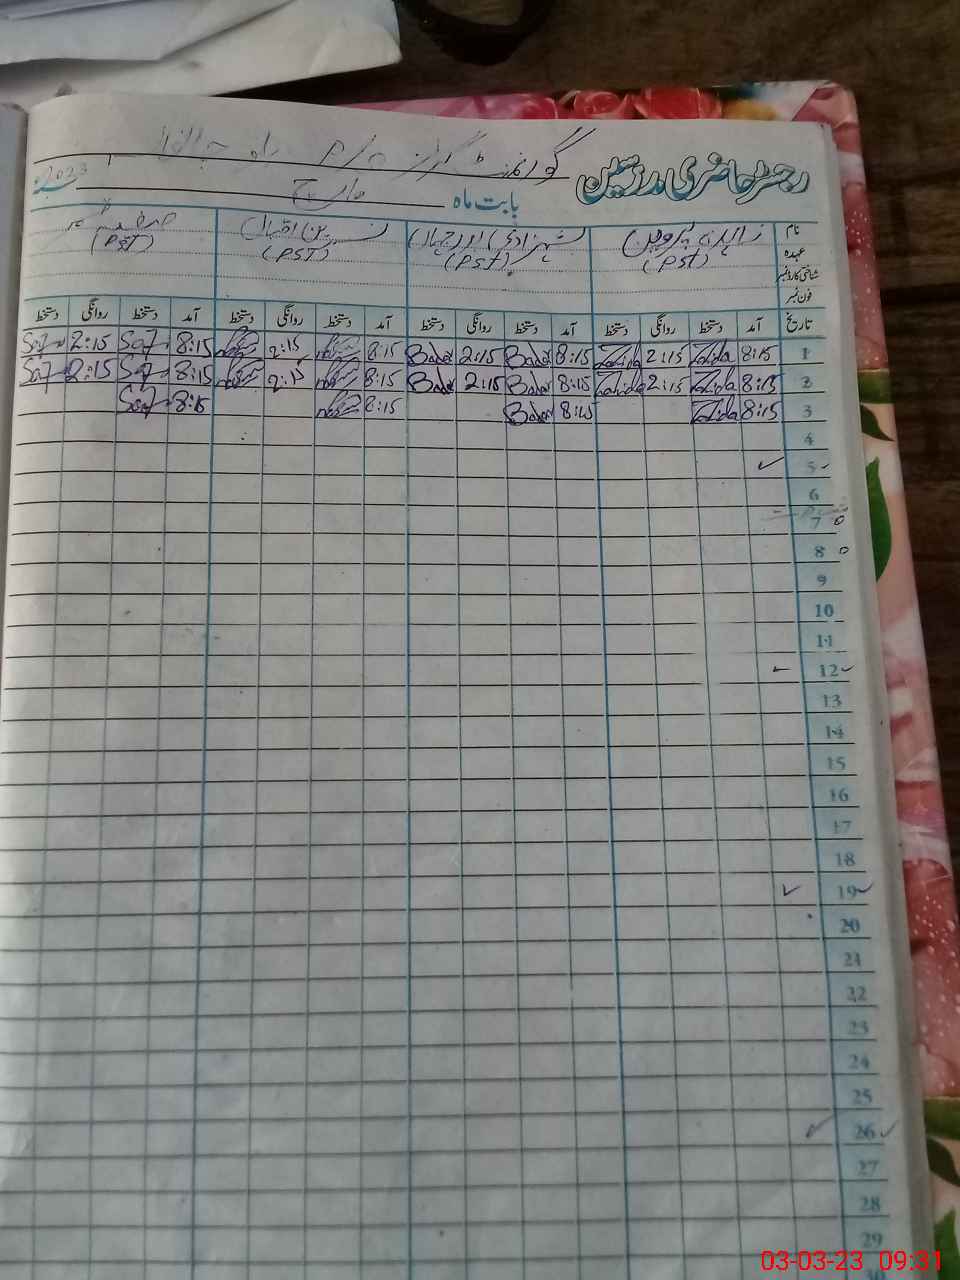 رجسٹر حاضری مدرسین گورنمنٹ گرلز
بابت ماہ مارچ 2023
نام زاہدہ پروین شہزادی نسرین اقبال
عہدہ (PST) (PST) (PST) (PST)
شناختی کارڈ نمبر
فون نمبر
تاریخ آمد دستخط روانگی دستخط آمد دستخط روانگی دستخط آمد دستخط روانگی دستخط آمد دستخط روانگی دستخط
1 8:15 Zahida 2:15 Zahida 8:15 Bader 2:15 Bader 8:15 2:15 8:15 Saf 2:15 Saf
2 8:15 Zahida 2:15 Zahida 8:15 Bader 2:15 Bader 8:15 2:15 8:15 Saf 2:15 Saf
3 8:15 Zahida 8:15 Bader 8:15 8:15 Saf
4
5
6
7
8
9
10
11
12
13
14
15
16
17
18
19
20
21
22
23
24
25
26
27
28
29
30
03-03-23 09:31